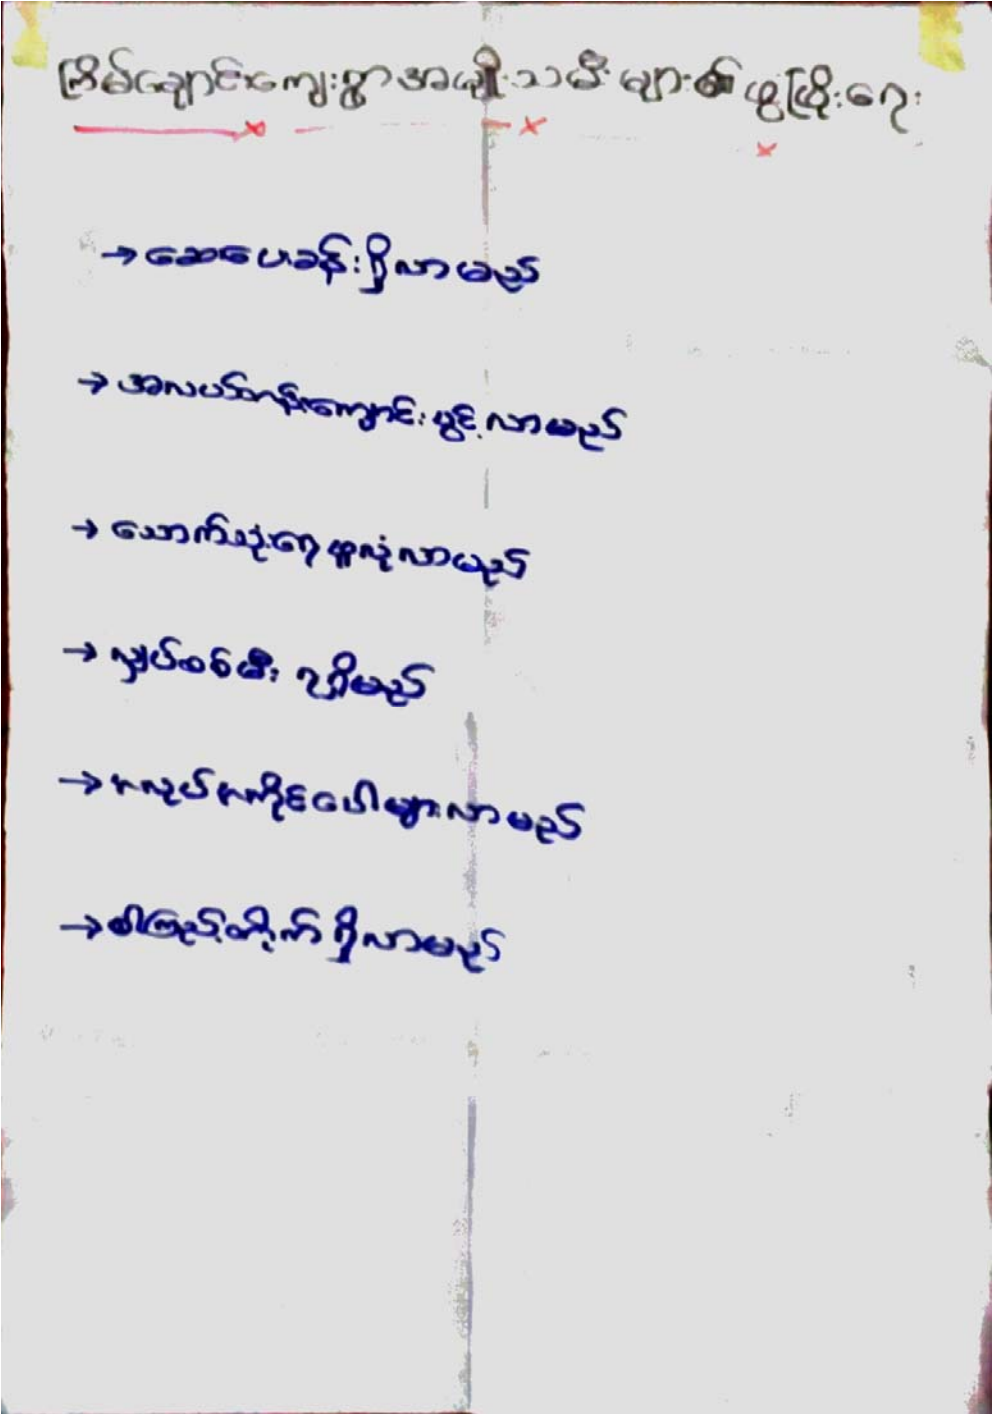 ကြိမ်ချောင်းကျေးရွာအမျိုးသမီးများ၏ဖွံ့ဖြိုးရေး
→ ဆေးပေးခန်းရှိလာမည်
→ အလယ်တန်းကျောင်းဖွင့်လာမည်
→ သောက်သုံးရေဖူလုံလာမည်
→ လျှပ်စစ်မီး ရရှိမည်
→ အလုပ်အကိုင်ပေါများလာမည်
→ စါကြည့်တိုက်ရှိလာမည်